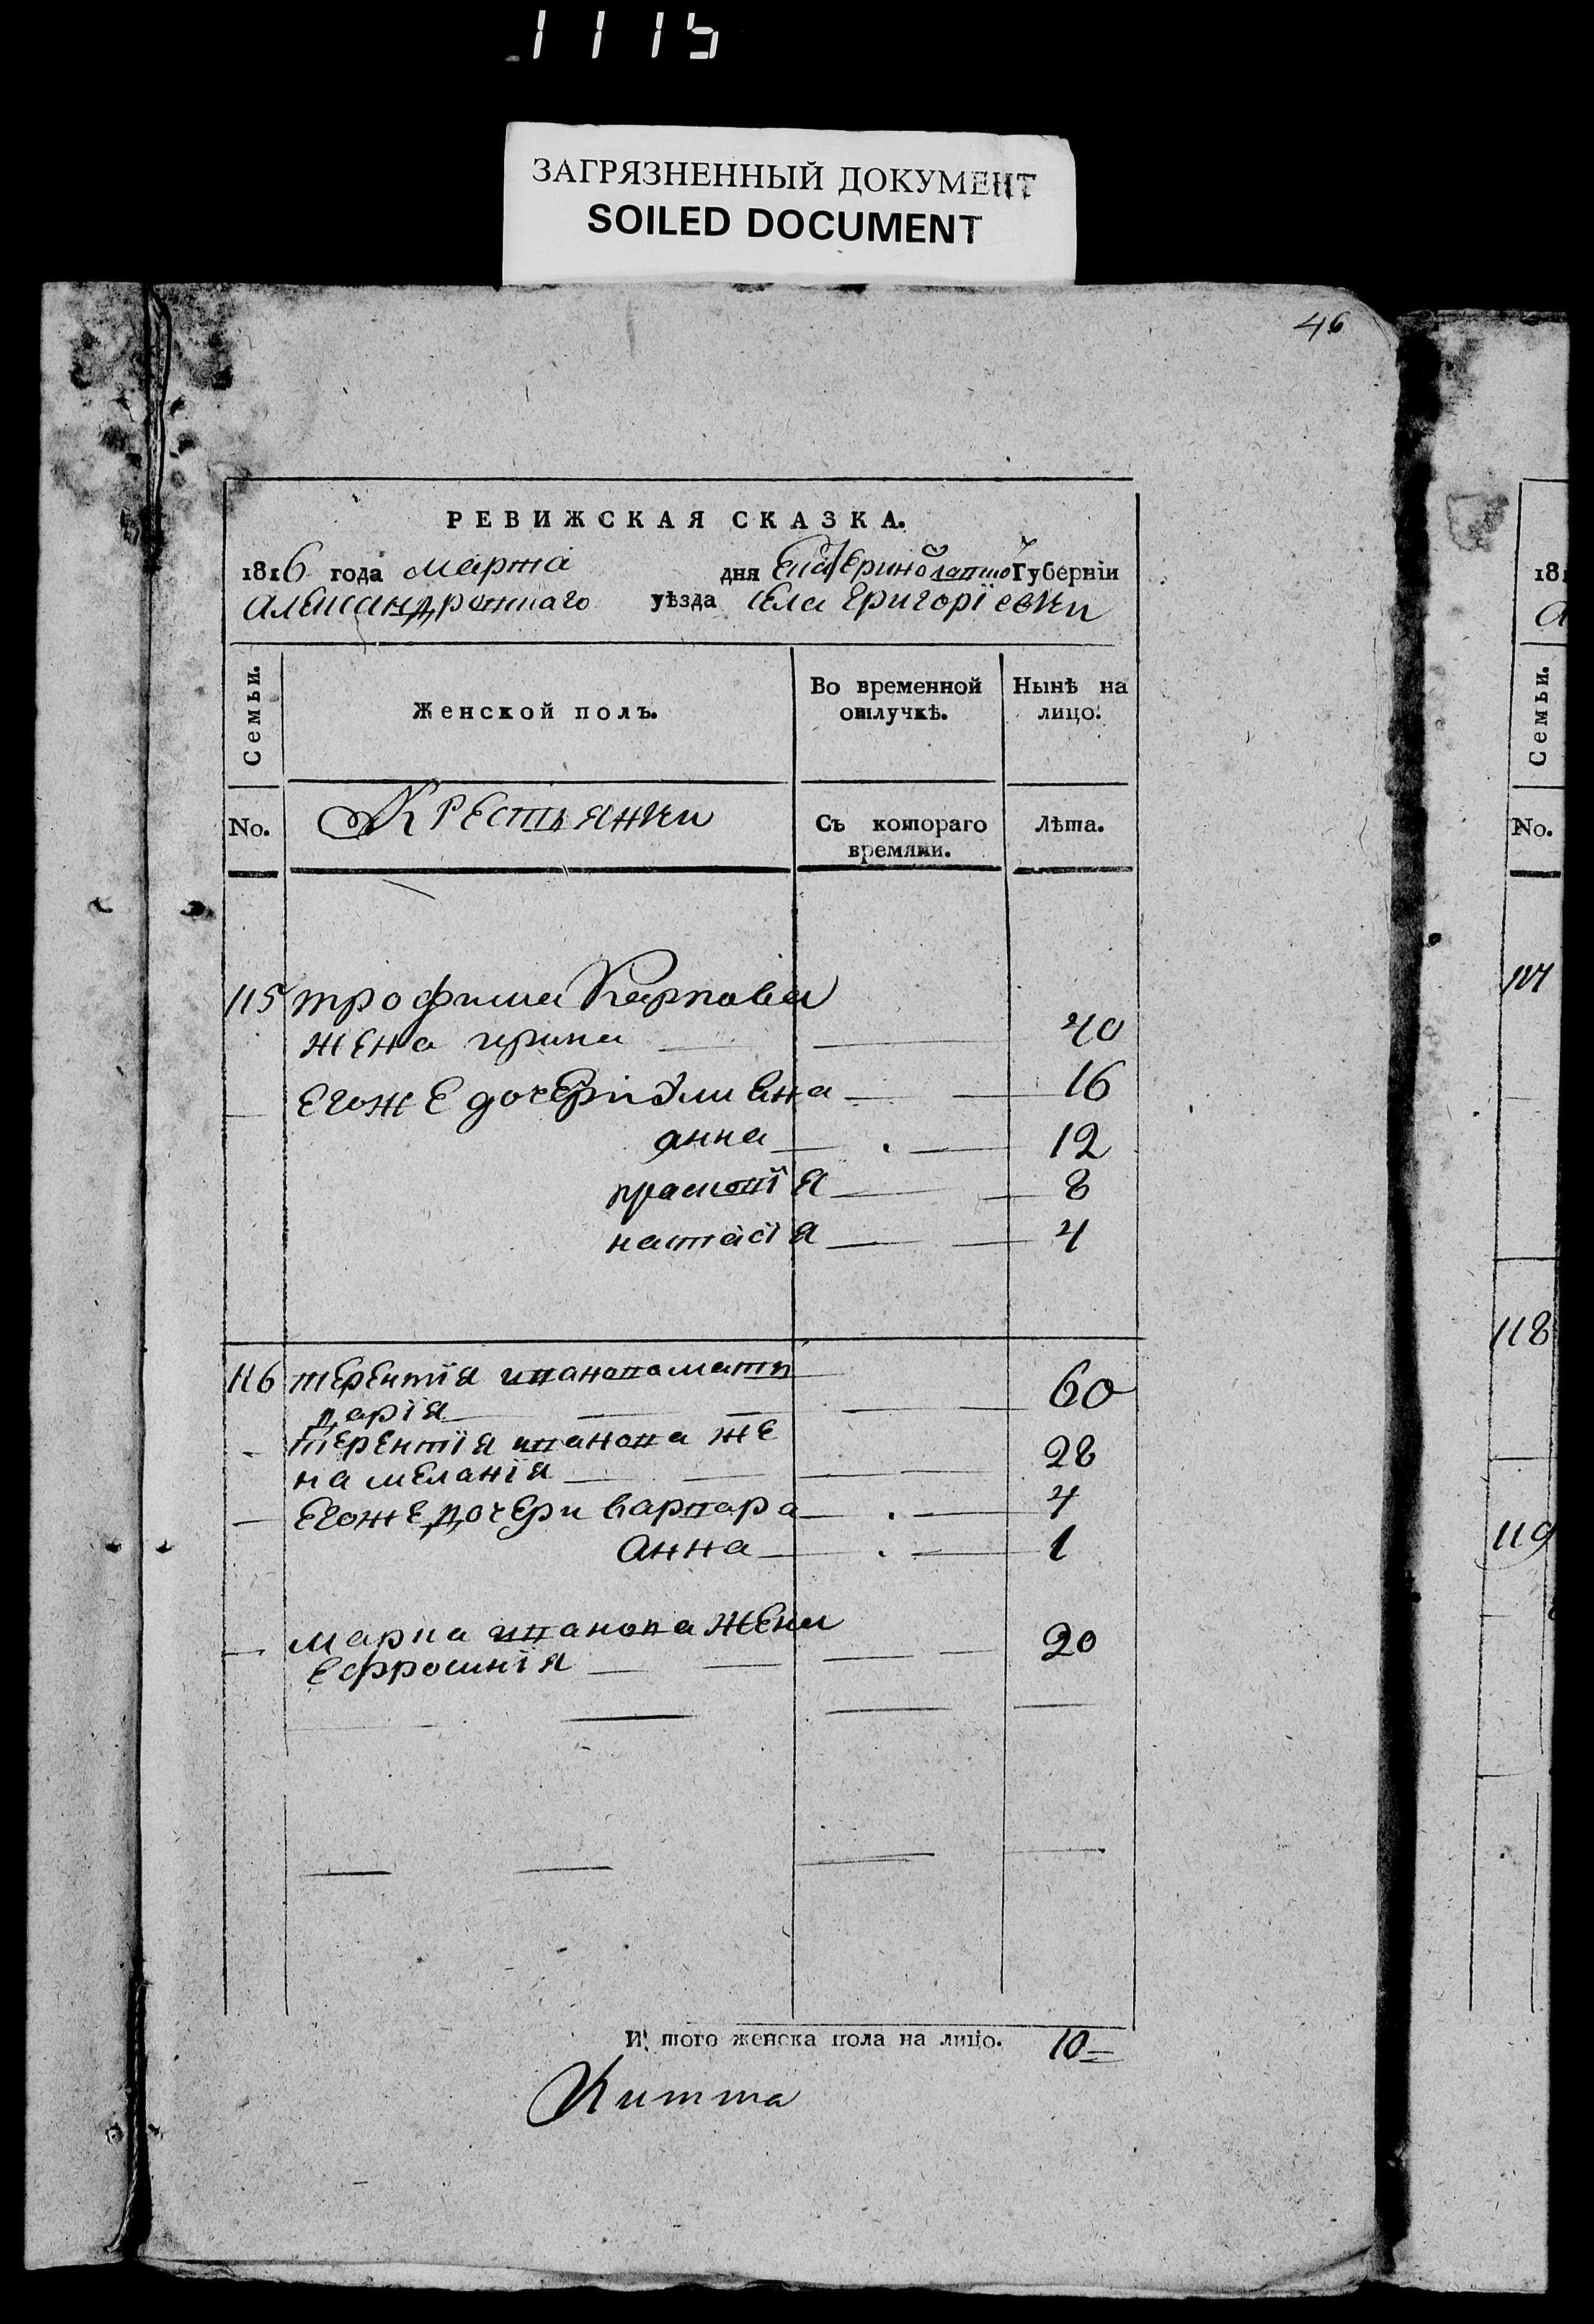 1115
ЗАГРЯЗНЕННЫЙ ДОКУМЕНТ
SOILED DOCUMENT
46
РЕВИЖСКАЯ СКАЗКА.
1816 года марта дня Екатеринославской Губерніи
Александровскаго уѣзда села Григорїевки
Семьи.
Женской полъ.
Во временной отлучкѣ.
Нынѣ на лицо.
No.
Крестьянки
Съ котораго времяни.
Лѣта.
115 трофима Карпова
жена ирина 40
егоже дочери Улиана 16
анна 12
праскотїя 8
настасїя 4
116 терентїя иванова мать
дарїя 60
терентїя иванова же
на меланїя 28
егоже дочери варвара 4
Анна 1
марка иванова жена
ефросинїя 20
И того женска пола на лицо. 10
Китта
181
Семьи.
No.
117
118
119